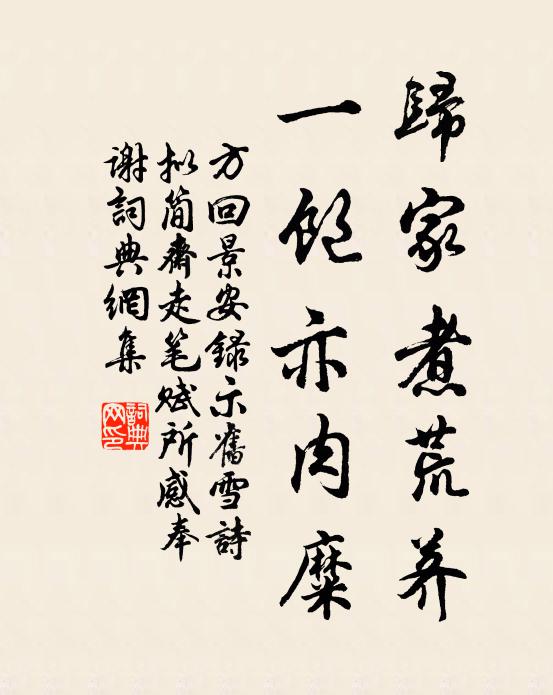 歸家煮荒荞
一飽亦肉糜
方回景安録示舊雪詩
拟简齋走笔赋所感奉
谢詞典網集
詞典网印